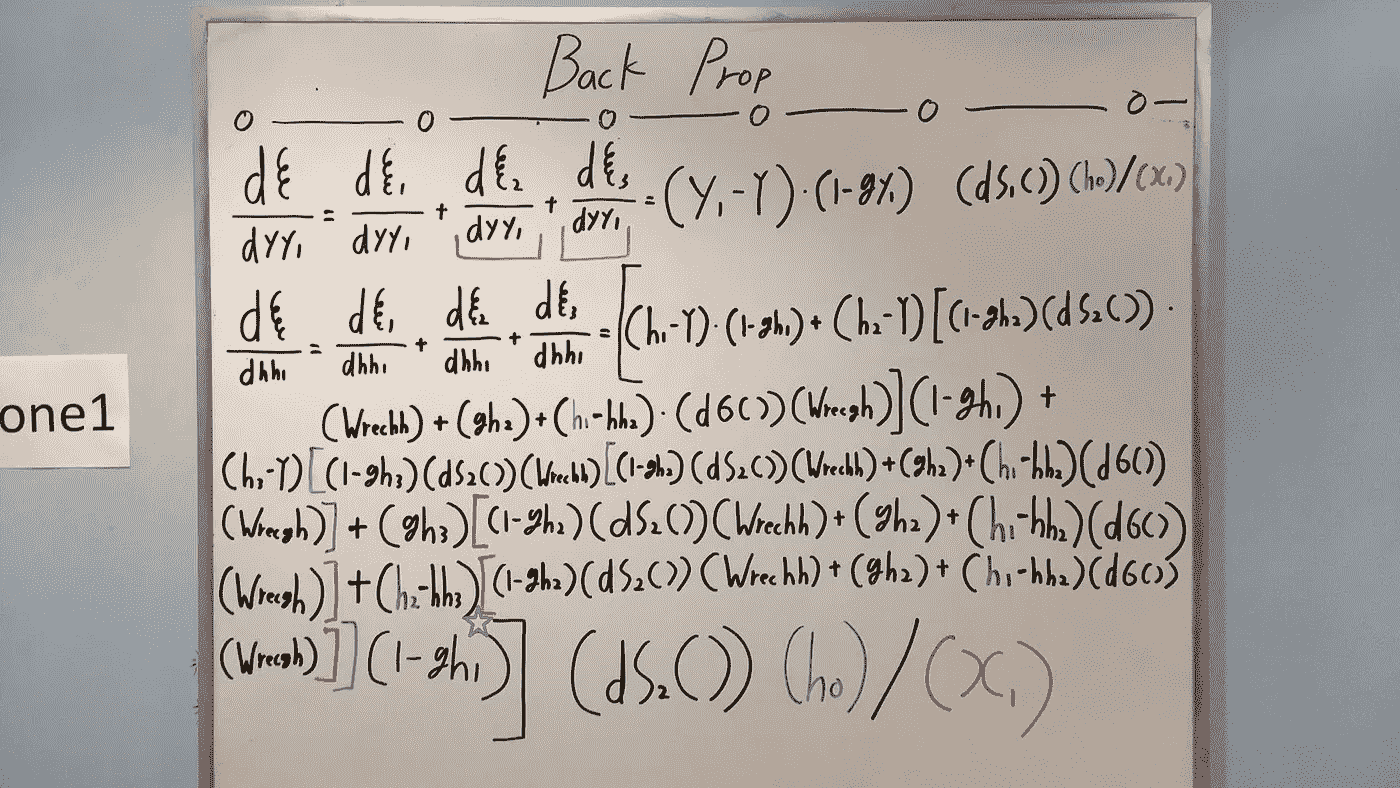 Back Prop
O — O — O — O — O — O —
dξ/dYY₁ = dξ₁/dYY₁ + dξ₂/dYY₁ + dξ₃/dYY₁ = (Y₁-Y)·(1-gY₁) (dS₁()) (h₀)/(x₁)
dξ/dhh₁ = dξ₁/dhh₁ + dξ₂/dhh₁ + dξ₃/dhh₁ = [(h₁-Y)·(1-gh₁) + (h₂-Y)[(1-gh₂)(dS₂())·
(Wrechh) + (gh₂) + (h₁-hh₂)·(d6())(Wrecgh)](1-gh₁) +
one1
(h₃-Y)[(1-gh₃)(dS₂())(Wrechh)[(1-gh₂)(dS₂())(Wrechh)+(gh₂)+(h₁-hh₂)(d6())
(Wrecgh)] + (gh₃)[(1-gh₂)(dS₂())(Wrechh)+(gh₂)+(h₁-hh₂)(d6())
(Wrecgh)] + (h₂-hh₃)[(1-gh₂)(dS₂())(Wrechh)+(gh₂)+(h₁-hh₂)(d6())
(Wrecgh)]](1-gh₁)] (dS₂()) (h₀)/(x₁)